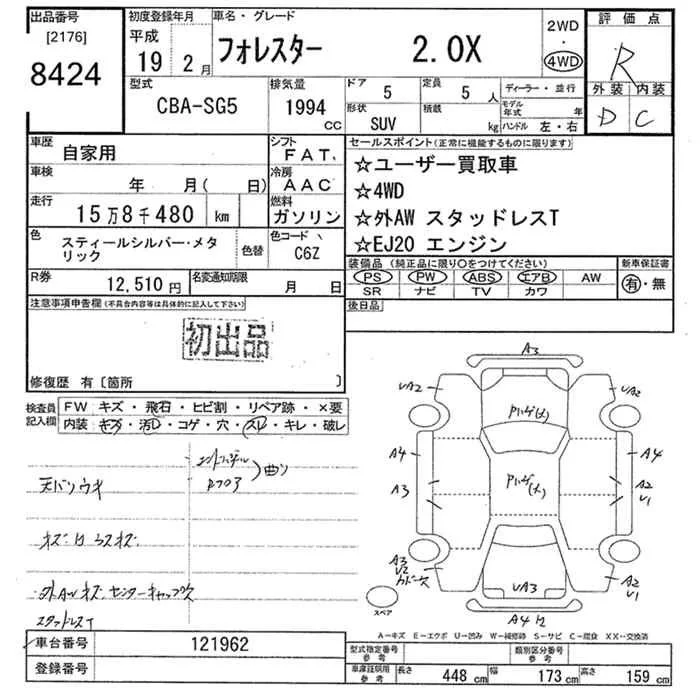 出品番号 初度登録年月 車名・グレード 評価点
[2176] 平成 2WD
8424 19 2月 フォレスター 2.0X ・ R
4WD
型式 排気量 ドア 5 定員 5人 ディーラー・並行 外装 内装
CBA-SG5 1994 CC 形状 SUV 積載 kg モデル年式 年 D C
ハンドル 左・右
車歴 自家用 シフト FAT セールスポイント(正常に機能するものに限ります)
車検 年 月( 日) 冷房 AAC ☆ユーザー買取車
走行 15万8千480 km 燃料 ガソリン ☆4WD
☆外AW スタッドレスT
色 スティールシルバー・メタリック 色替 色コード C6Z ☆EJ20 エンジン
装備品(純正品に限り○をつけてください) 新車保証書
R券 12,510円 名変通知期限 月 日 PS PW ABS エアB AW 有・無
SR ナビ TV カワ
注意事項申告欄(不具合内容等は具体的に記入して下さい) 後日品
初出品
修復歴 有〔箇所 〕
検査員記入欄 FW キズ・飛石・ヒビ割・リペア跡・×要
内装 キズ・汚レ・コゲ・穴・スレ・キレ・破レ
A3
UA2 UA2
A4 A4
A3 A2
U1
曲り
天バリウキ
A3
U2
A2
U1
UA3
外AWキズ センターキャップ欠
スタッドレスT
スペア
A4
A-キズ E-エクボ U-凹み W-補修跡 S-サビ C-腐食 XX-交換済
車台番号 121962 型式指定番号 参考 類別区分番号 参考
登録番号 車庫証明用 参考 長さ 448cm 幅 173cm 高さ 159cm